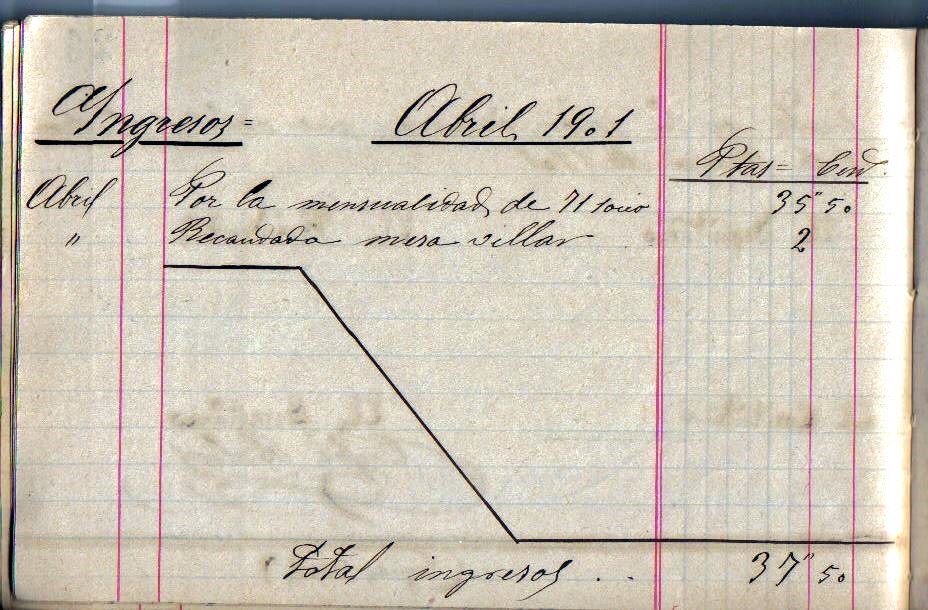 Ingresos = Abril 1901
Ptas = Cent.
Abril Por la mensualidad de 71 socio 35" 50
" Recaudado mesa villar 2
Total ingresos . . 37" 50